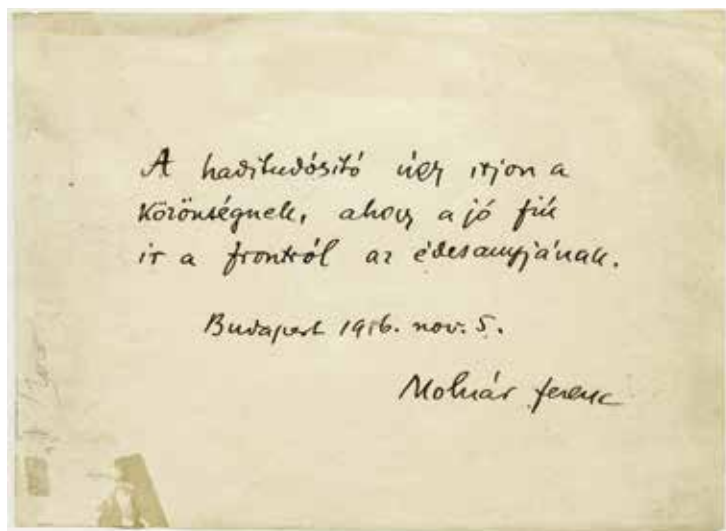 A haditudósító úgy irjon a
közönségnek, ahogy a jó fiú
ir a frontról az édesanyjának.
Budapest 1916. nov. 5.
Molnár Ferenc